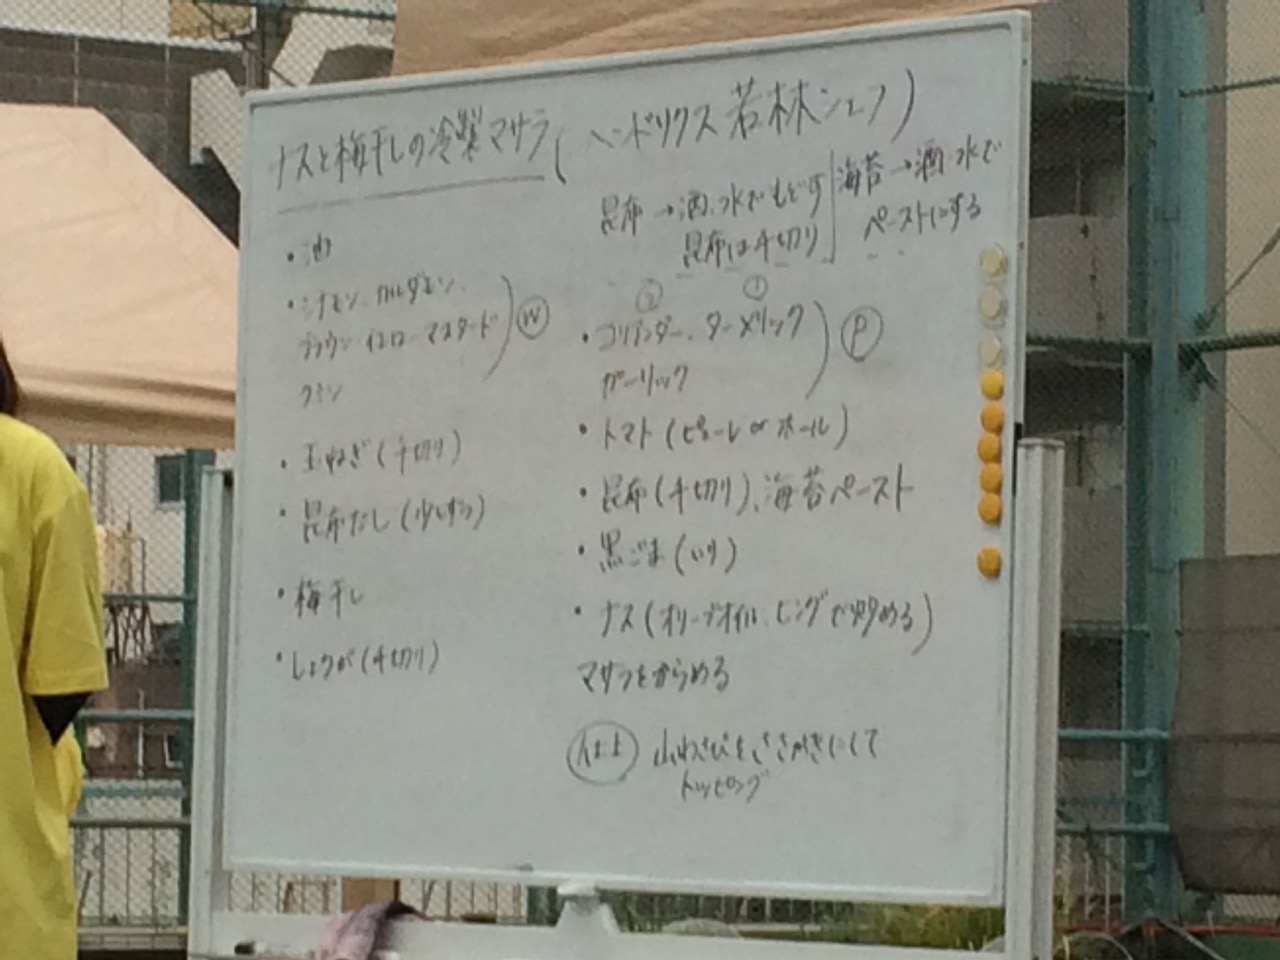 ナスと梅干しの冷製マサラ(ヘンドリクス若林シェフ)
昆布→酒、水でもどす
昆布は千切り
海苔→酒・水で
ペーストにする
・油
・シナモン、カルダモン、
ブラウン・イエローマスタード
クミン
W
・玉ねぎ(千切り)
・昆布だし(少しずつ)
・梅干し
・しょうが(千切り)
② ①
・コリアンダー、ターメリック
ガーリック
P
・トマト(ピューレorホール)
・昆布(千切り)、海苔ペースト
・黒ごま(いり)
・ナス(オリーブオイル、ヒングで炒める)
マサラをからめる
仕上 山わさびをささがきにして
トッピング